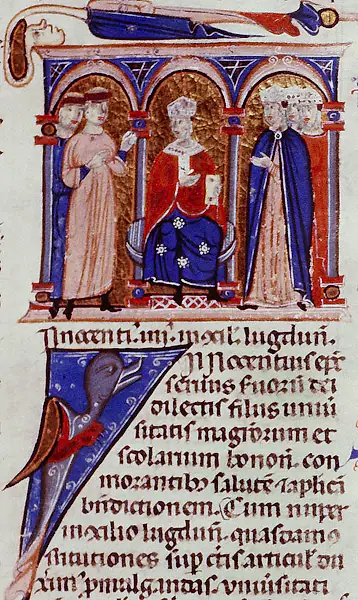 Innocenti. iiij. in ɔcil. lugduñ.
Innocentius ep̃c
seruus suorũ dei
dilectis filiis uniũ
sitatis magistrorum et
scolarium bonoñ. com
morantib; salutẽ ⁊ apl'icã
bñdictionem. Cum nuper
in ɔcilio lugduñ. quasdam ɔ
stitutiones sup̃ c̃tis articul' du
xim' p̃mulgandas. uniũsitati